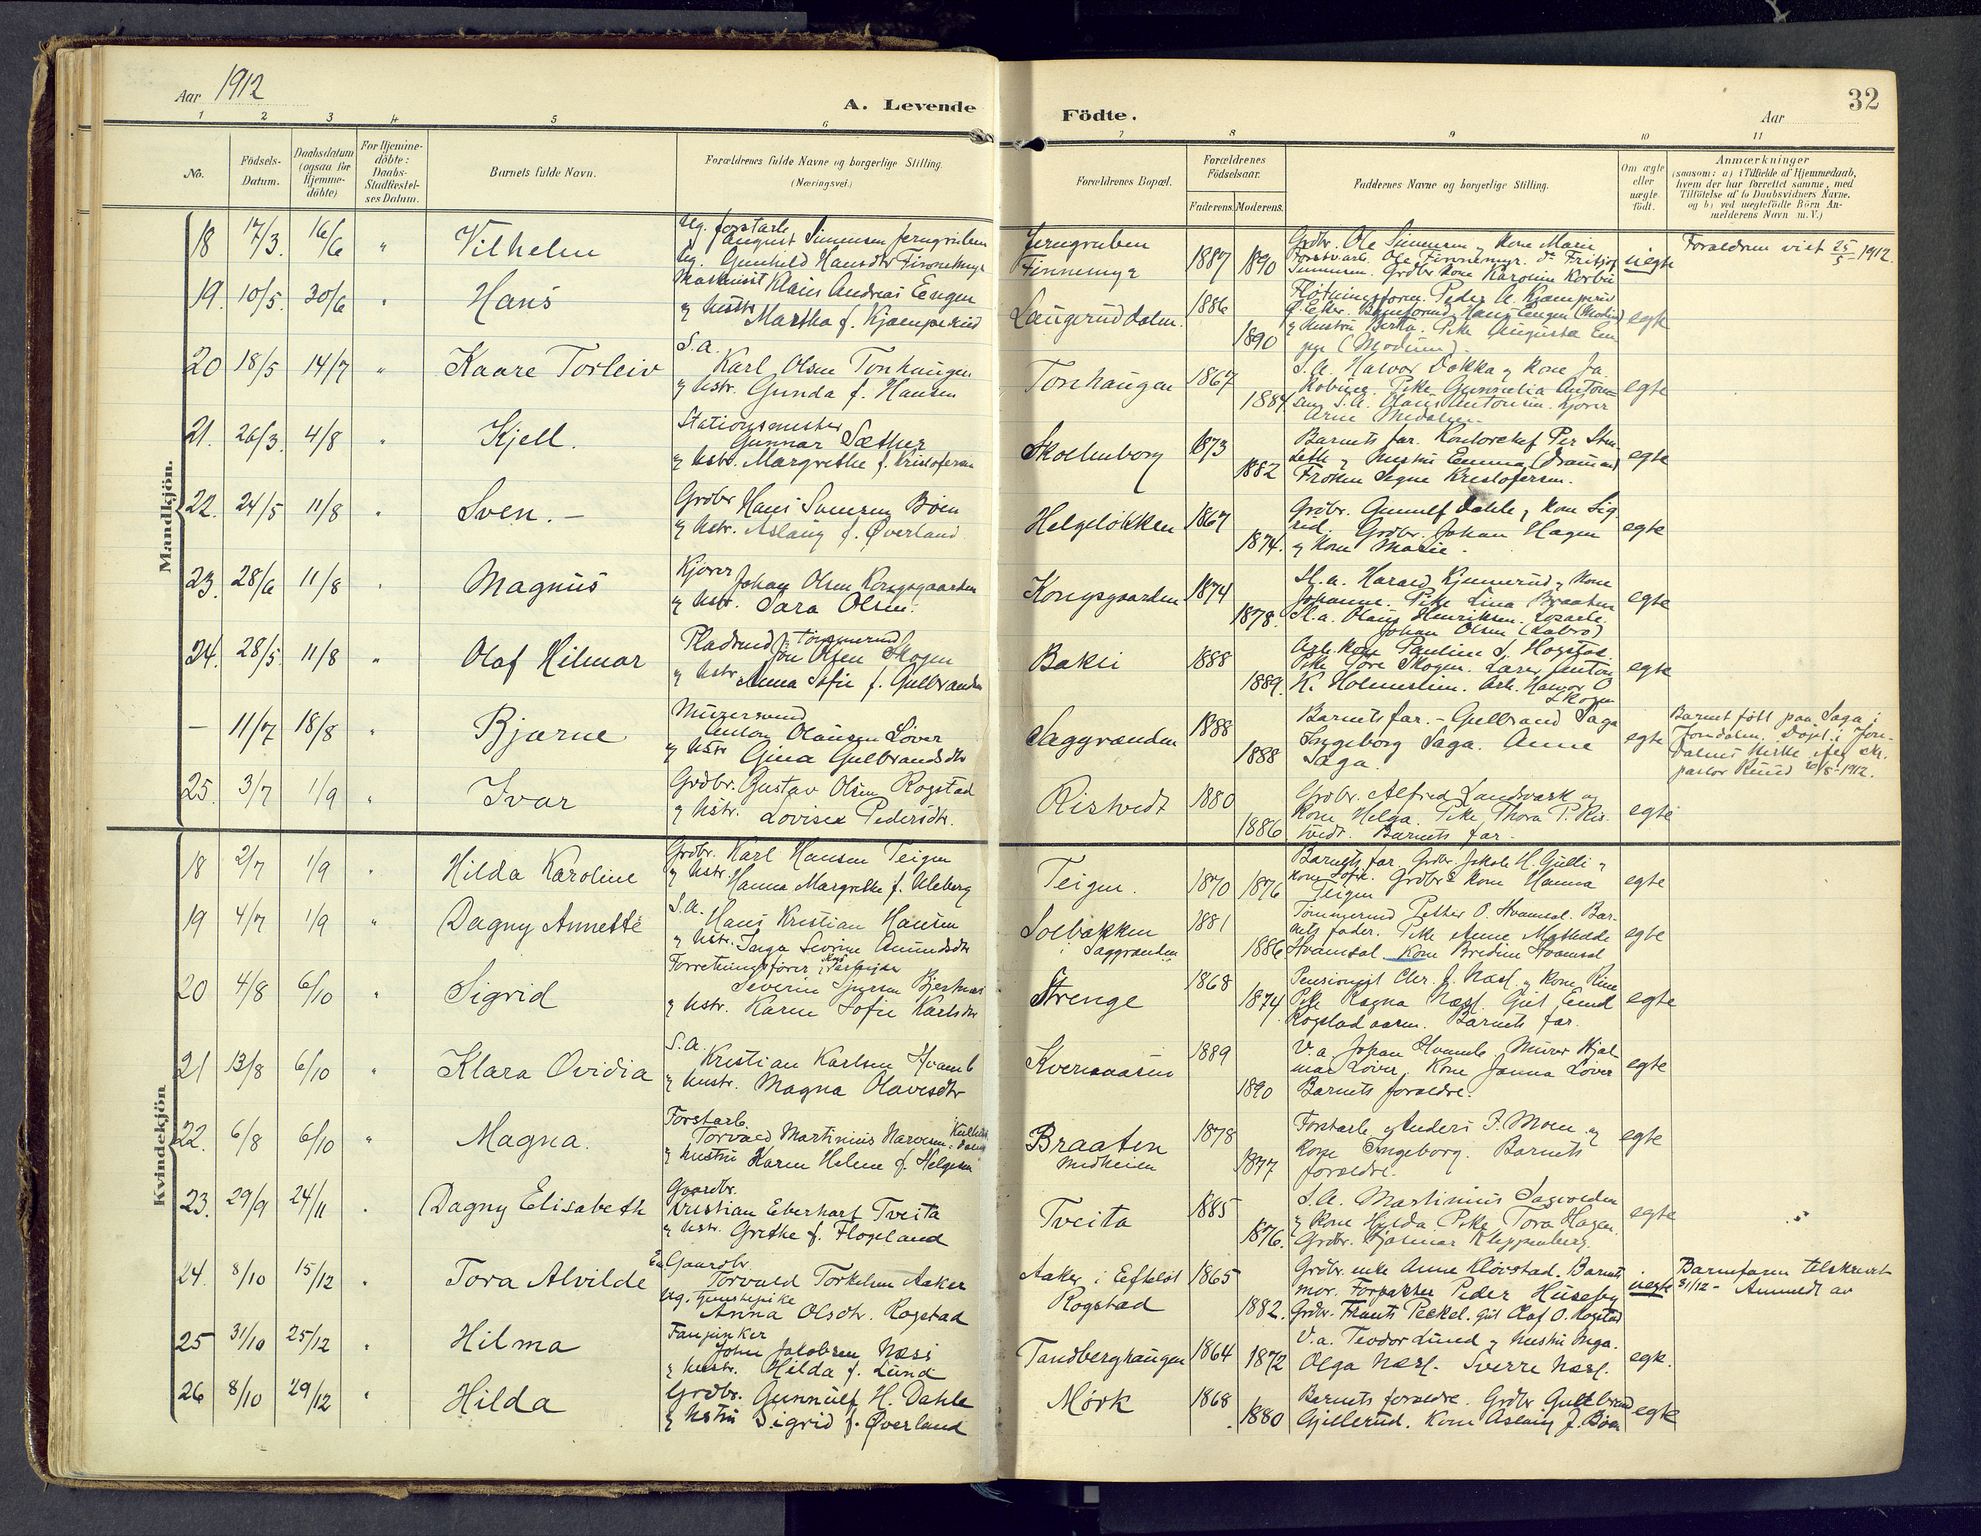 Aar 1912
A. Levende
1 2 3 4 5 6
No.
Födsels-Datum.
Daabsdatum (ogsaa for Hjemme-döbte)
For Hjemme-döbte: Daabs-Stadfæstel-ses Datum.
Barnets fulde Navn.
Forældrenes fulde Navne og borgerlige Stilling.
(Næringsvei.)
Födte.
Aar
32
7 8 9 10 11
Forældrenes Bopæl.
Forældrenes Födselsaar.
Faderens. Moderens.
Faddernes Navne og borgerlige Stilling.
Om ægte eller uægte födt.
Anmærkninger
(saasom: a) i Tilfælde af Hjemmedaab,
hvem der har forrettet samme, med
Tilföielse af to Daabsvidners Navne.
og b) ved uægtefödte Börn An-
melderens Navn m. V.)
Mandkjön.
18 17/3. 16/6 " Vilhelm
Ug. forstarb. August Simensen Jerngruben
Ug. Gunhild Hansdtr Finnemyr
Jerngruben
Finnemyr
1887 1890
Grdbr. Ole Simensen og kone Marie
Forstarb. Ole Finnemyr. Fritjof
Simensen. Grdbr kone Karoline
uegte
Foreldrene viet 25/5 1912.
19. 10/5. 30/6 " Hans
Maskinist Klaus Andreas Eengen
og hustr Martha f. Kjæmperud
Laugeruddalen.
1886 1890
Fløtningsform. Peder A. Kjæmperud
Hans Eengen (Modum)
og hustru Berta. Pike Augusta Een
gen (Modum).
egte
20 18/5 14/7 " Kaare Torleiv
S.a.
Karl Olsen Tonhaugen
og hstr. Gunda f. Hansen
Tonhaugen
1867 1884
S.a. Halvor Dokka og kone Ja
kobine. Pike Antons
Olaus Antonsen. kjører
Arne Medalen.
egte
21. 26/3. 4/8 " Kjell.
Stationsmester
Gunnar Sæther
og hstr. Margrethe f. Kristofersen
Skollenborg
1873 1882
Barnets far. Kontorchef Per Sten
seth og hustru Emma (Drammen)
Frøken Signe Kristofersen.
egte
22. 24/5 11/8 " Sven.–
Grdbr Hans Svensen Bøen
og hstr. Aslaug f. Øverland
Helgeløkken
1867 1874.
Grdbr. Gunulf Dahle og kone Sig
rid. Grdbr. Johan Hagen
og kone Marie.
egte
23. 28/6 11/8 " Magnus
Kjører
Johan Olsen Kongsgaarden
og hstr. Sara Olsen.
Kongsgaarden
1874 1878.
S.a. Harald Kjennerud og kone
Johanne. Pike Lina Braaten
S.a. Olaus Henriksen. Losarb.
Johan Olsen (Labro)
egte
24. 28/5. 11/8 " Olaf Hilmar
Pladsmd. og tømmermd
Jon Olsen Skogen
og hstr Anna Sofie f. Gulbrandsen
Bakli
1888 1889.
Arb. kone Pauline S. Hogstad.
Pike Tore Skogen. Lars Anton
K. Holmestim. Arb. Halvor O
Skogen
egte
– 11/7 18/8 " Bjarne
Murersvend
Anton Olausen Løver
og hstr Gina Gulbrandsdtr
Saggrænden
1888 1888
Barnets far. – Gulbrand Saga
Ingeborg Saga. Anne
Saga.
egte
Barnet født paa Saga i
Jondalen. Døpt i Jon-
dalens kirke af sk.
pastor Ruud 18/8-1912.
25. 3/7 1/9 " Ivar
Grdbr. Gustav Olsen Rogstad
og hstr. Lovise Pedersdtr.
Ristvedt
1880 1886
Grdbr. Alfred Landsverk og
kone Helga. Pike Thora P. Ris
tvedt. Barnets far.
egte
Kvindekjön
18 2/7 1/9 " Hilda Karoline
Grdbr. Karl Hansen Teigen
og hstr. Hanna Margrethe f. Aleberg
Teigen.
1870 1876
Barnets far. Grdbr. Jakob H. Gulli og
kone Sofie. Grdbr kone Hanna
Teigen
egte
19 4/7 1/9 " Dagny Annette
S.a.
Hans Kristian Hansen
og hstr. Saga Sevrine Amundsdtr
Solbakken
i Saggrænden
1881 1886
Tømmermd Petter O. Hvamsal. Bar
nets fader. Pike Anne Mathilde
Hvamsal. Kone Bredine Hvamsal
egte
20 4/8 6/10 " Sigrid
Forretningsfører i
Severin Bjerknæs
og hstr. Karen Sofie Karlsdtr
Strenge
1868 1874
Pensionist Chr. J. Næss. og kone Rine
Pike Ragna Næss. Gut Emil
Rogstadaasen. Barnets far.
egte
21 13/8 6/10 " Klara Ovidia
S.a.
Kristian Karlsen Hvamb
og hustr. Magna Olavesdtr
Kvernaasen
1889 1890
V.a. Johan Hvamb. Murer Hjal
mar Løver. Kone Janna Løver
Barnets foreldre.
egte
22. 6/8 6/10 " Magna.
Forstarb.
Torvald Martinius Narvesen
og hustru Karen Helene f. Helgesen
Braaten
Midheien
1878 1877
Forstarb. Anders J. Moen og
kone Ingeborg. Barnets
foreldre.
egte
23. 29/9 24/11 . Dagny Elisabeth
Gaardbr.
Kristian Eberhart Tveita
og hstr. Grethe f. Flogeland
Tveita
1885 1876.
S.a. Martinius Sagvolden
og kone Hulda. Pike Tora Hagen.
Grdbr. Hjalmar Kleppenberg.
egte
24. 8/10 15/12 . Tora Alvilde
Em. Gaardbr.
Torvald Torkelsen Aaker
Ug. Tjenestepike
Anna Olsdtr. Rogstad
Aaker i Efteløt
Rogstad
1865 1882.
Grdbr. enke Anne Kløvstad. Barnets
mor. Forpakter Peder Huseby.
Grdbr. Frants Peckel. gut Olaf O. Rogstad
uegte
Barnefaren tilskrevet
31/12 – Anmeldt av
25 31/10 25/12 . Hilma
Fanjunker
John Jakobsen Næss
og hustr. Hilda f. Lund
Tandberghaugen
1864 1872
V.a. Teodor Lund og hustru Inga.
Olga Næss. Sverre Næss.
egte.
26 8/10 29/12 . Hilda
Grdbr. Gunnulf H. Dahle
og hstru Sigrid f. Øverland
Mørk
1868 1880
Barnets foreldre. Grdbr Gulbrand
Gjellerud. Kone Aslaug J. Bøen
egte